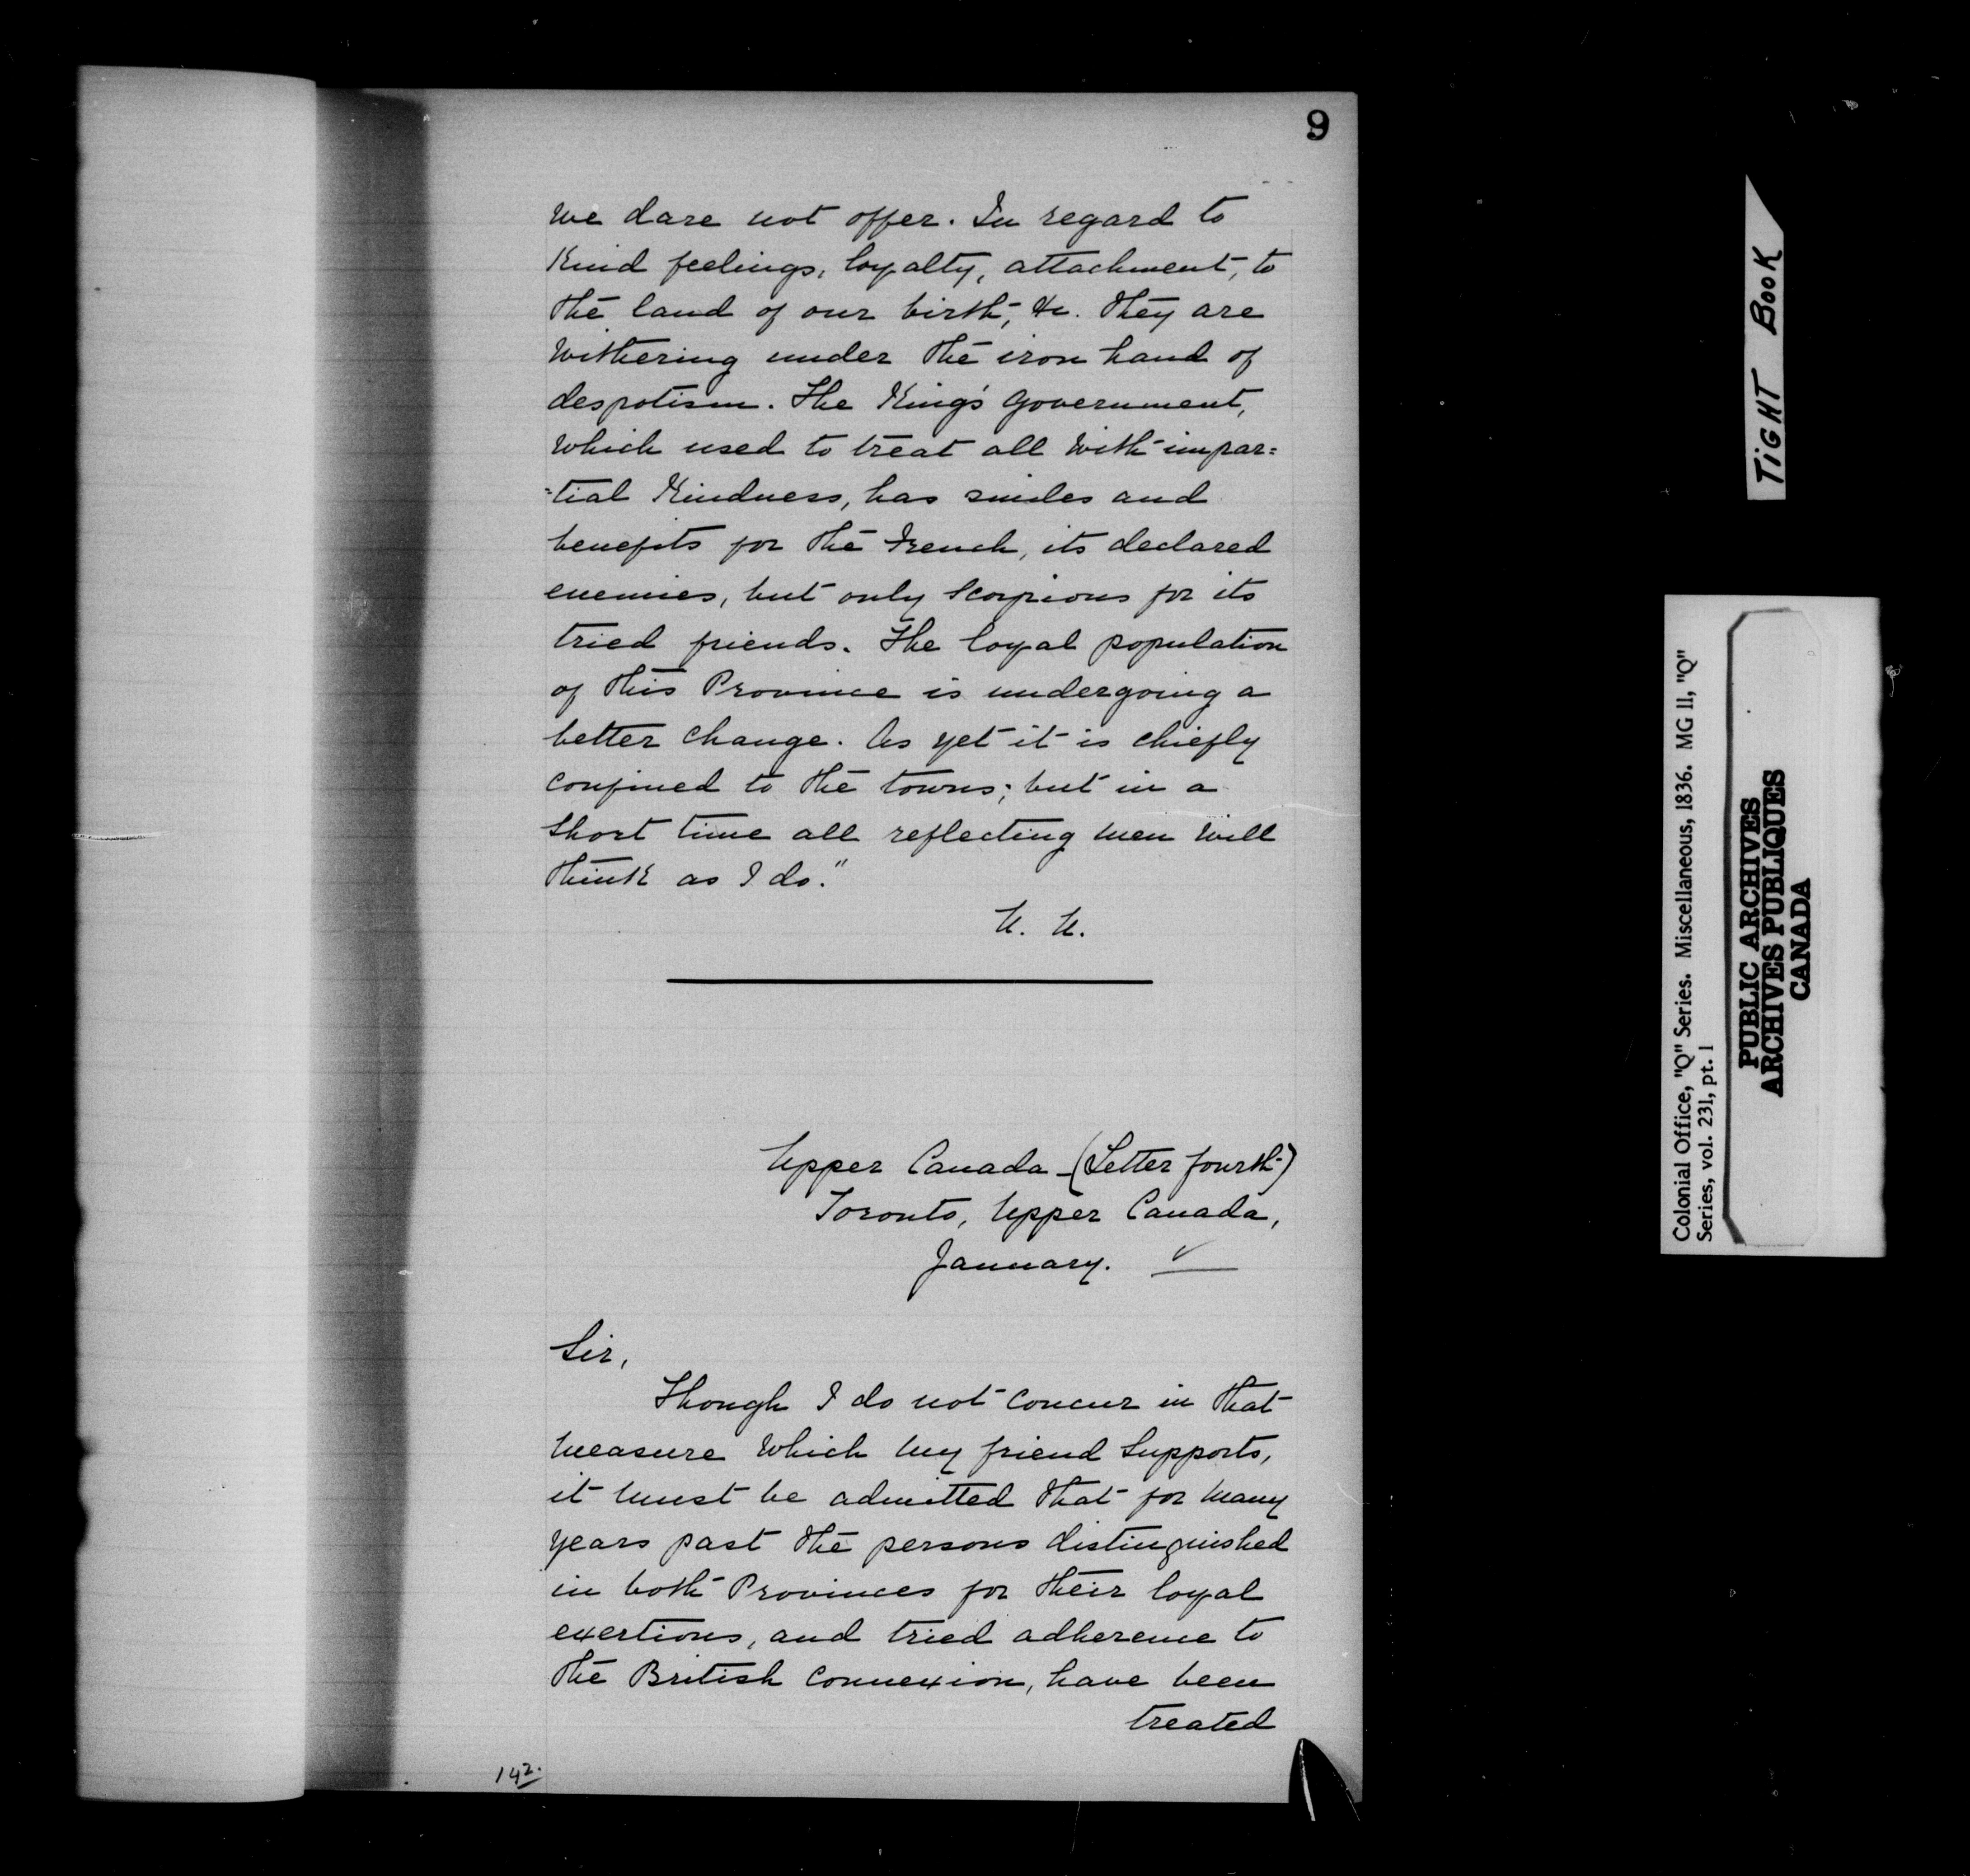 9
we dare not offer. In regard to
kind feelings, loyalty, attachment, to
the land of our birth, &c. they are
withering under the iron hand of
despotism. The King's Government,
which used to treat all with impar=
=tial kindness, has smiles and
benefits for the French, its declared
enemies, but only scorpions for its
tried friends. The loyal population
of this Province is undergoing a
better change. As yet it is chiefly
confined to the towns; but in a
short time all reflecting men will
think as I do."
U. U.
Upper Canada - (Letter fourth)
Toronto, Upper Canada,
January.
Sir,
Though I do not concur in that
measure which my friend supports,
it must be admitted that for many
years past the persons distinguished
in both Provinces for their loyal
exertions, and tried adherence to
the British connexion, have been
treated
142.
TIGHT BOOK
Colonial Office, "Q" Series. Miscellaneous, 1836. MG 11, "Q"
Series, vol. 231, pt. 1
PUBLIC ARCHIVES
ARCHIVES PUBLIQUES
CANADA